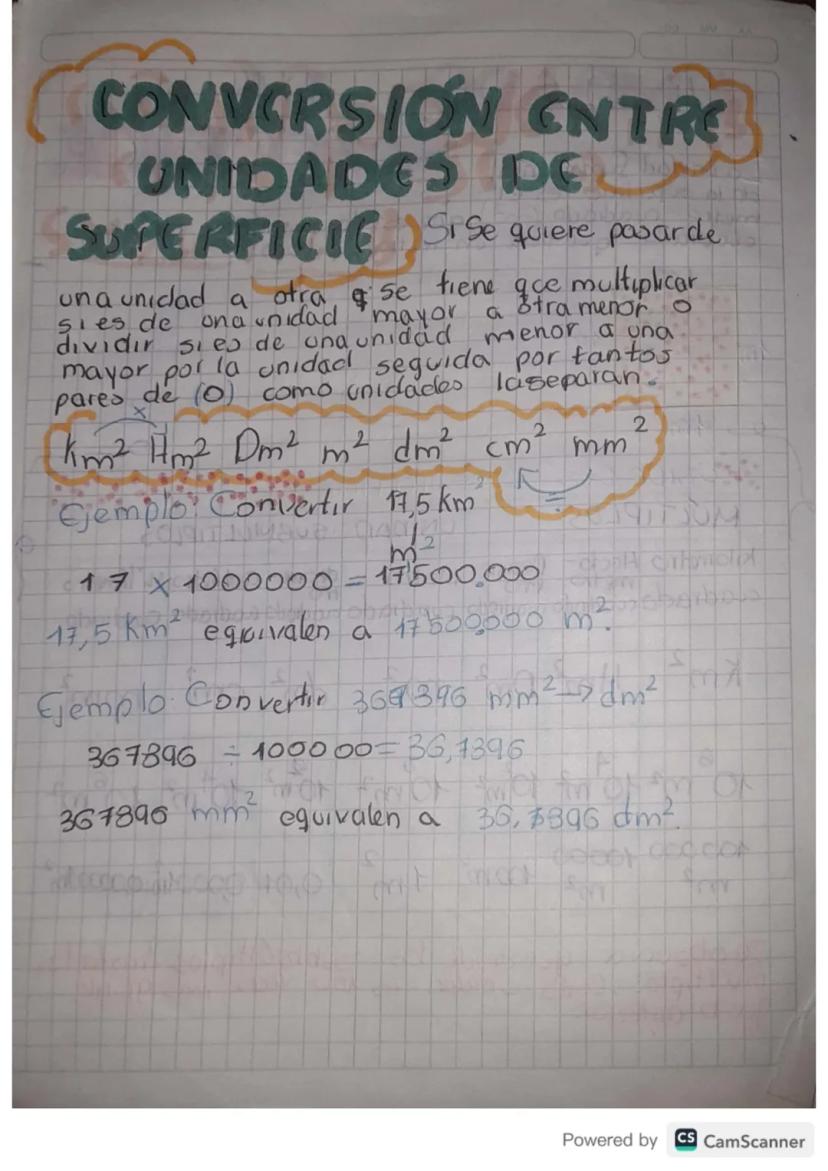 CONVERSIÓN ENTRE
UNIDADES DE
SUPERFICIE Si Se quiere pasar de
una unidad a otra se tiene que multiplicar
si es de una unidad mayor a otra menor o
dividir si es de una unidad menor a una
mayor por la unidad seguida por tantos
pares de (0) como unidades la separan.
x
Km² Hm² Dm² m² dm² cm² mm²
÷
Ejemplo: Convertir 17,5 km²
↓
m²
17 x 1000000 = 17500.000
17,5 Km² equivalen a 17500.000 m².
Ejemplo: Convertir 367396 mm² → dm²
367896 ÷ 100000 = 36,7396
367896 mm² equivalen a 36,7896 dm².
Powered by CS CamScanner